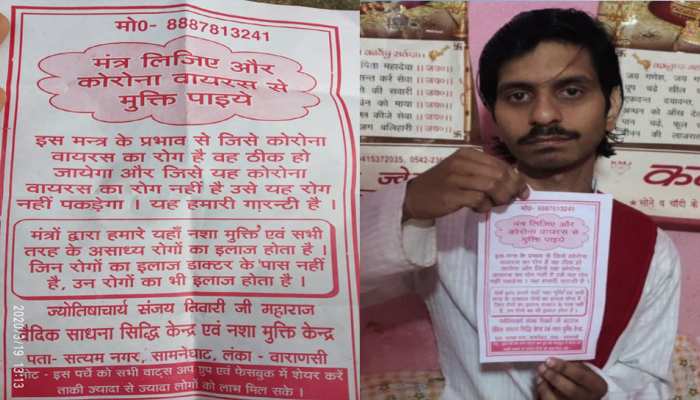 मो0- 8887813241
मंत्र लिजिए और
कोरोना वायरस से
मुक्ति पाइये
इस मन्त्र के प्रभाव से जिसे कोरोना
वायरस का रोग है वह ठीक हो
जायेगा और जिसे यह कोरोना
वायरस का रोग नहीं है उसे यह रोग
नहीं पकड़ेगा । यह हमारी गारन्टी है ।
मंत्रों द्वारा हमारे यहाँ नशा मुक्ति एवं सभी
तरह के असाध्य रोगों का इलाज होता है ।
जिन रोगों का इलाज डाक्टर के पास नहीं
है, उन रोगों का भी इलाज होता है ।
ज्योतिषाचार्य संजय तिवारी जी महाराज
वैदिक साधना सिद्धि केन्द्र एवं नशा मुक्ति केन्द्र
पता- सत्यम नगर, सामनेघाट, लंका - वाराणसी
नोट - इस पर्चे को सभी वाट्स अप ग्रुप एवं फेसबुक में शेयर करें
ताकी ज्यादा से ज्यादा लोगों को लाभ मिल सके ।
2020/3/19 13:13
पिता महादेवा
सन्त करें सेवा
की सवारी
जय गणेश, जय
मो0- 8887813241
मंत्र लिजिए और
कोरोना वायरस से
मुक्ति पाइये